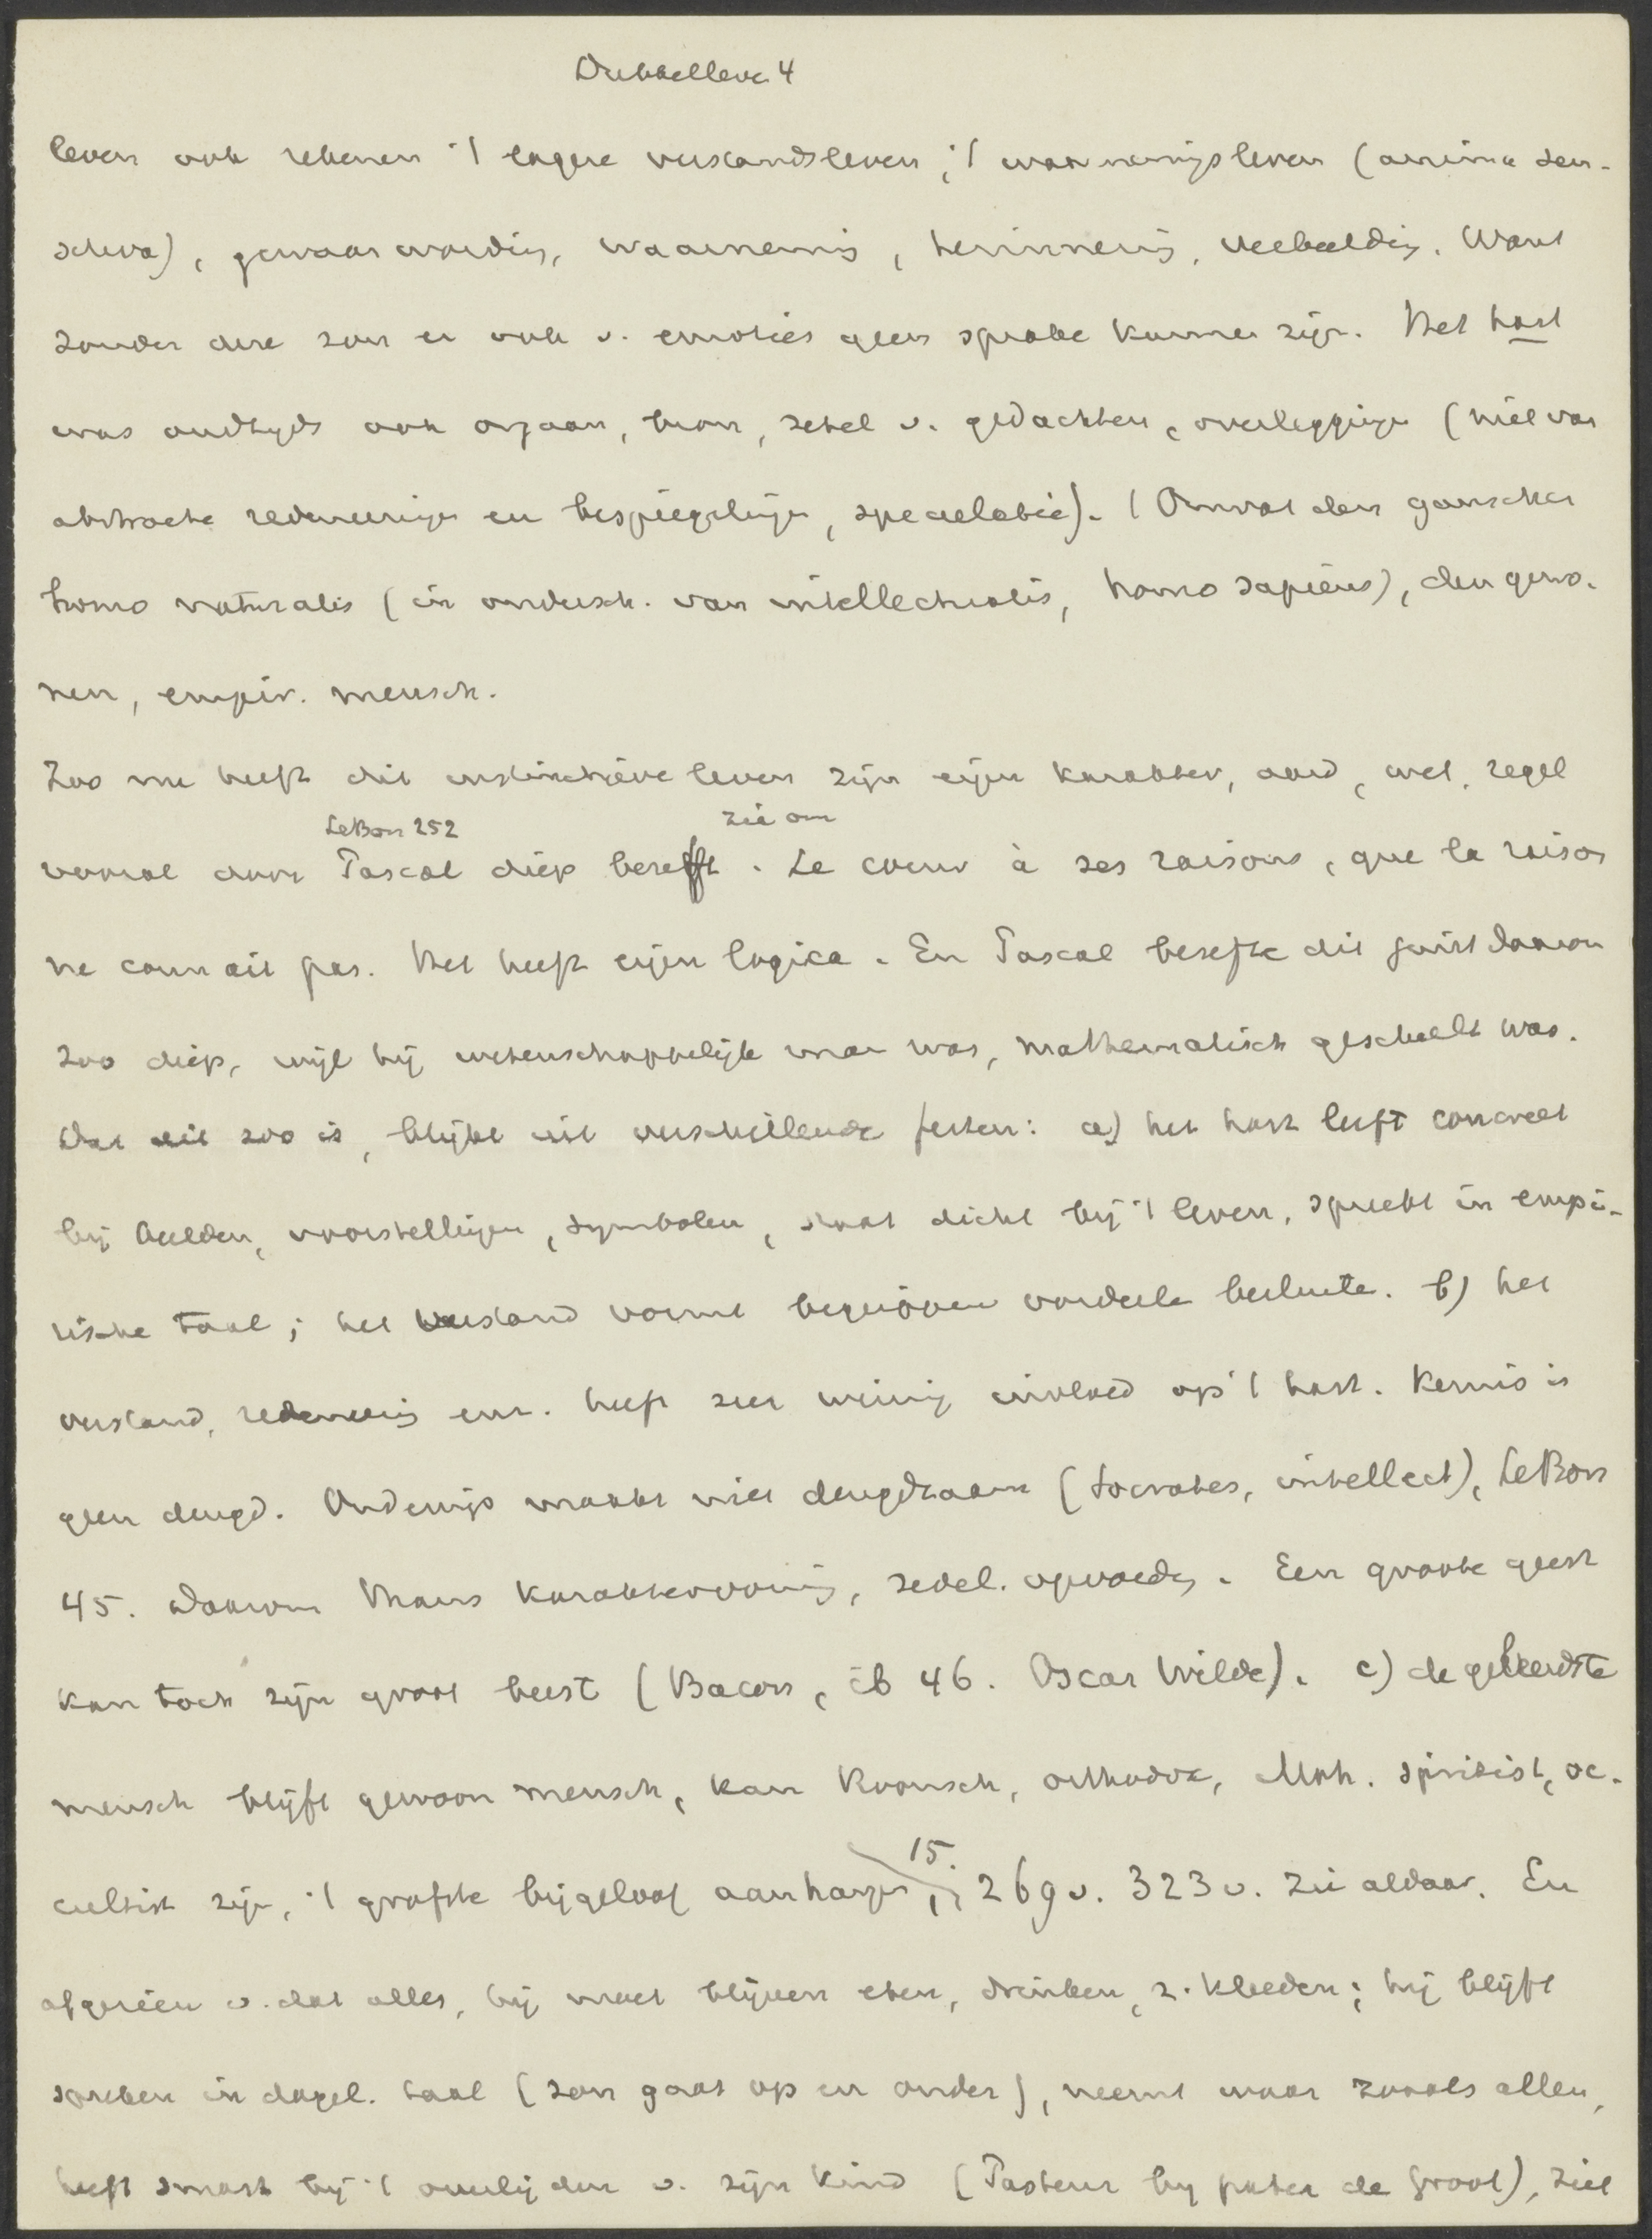 Dubbelleven 4
leven ook rekenen 't lagere verstandsleven, 't waarnemingsleven (anima sen-
sitiva), gewaarwording, waarneming, herinnering, verbeelding. Want
zonder deze zou er ook v. emoties geen sprake kunnen zijn. Het hart
was oudtijds ook orgaan, bron, zetel v. gedachten, overleggingen (niet van
abstracte redeneeringen en bespiegelingen, speculatie). Omvat den ganschen
homo naturalis (in ondersch. van intellectualis, homo sapiens), den gewo-
nen, empir. mensch.
Zoo nu heeft dit instinctieve leven zijn eigen karakter, aard, wet, regel
LeBon 252 zie om
vooral door Pascal diep beseft. Le coeur à ses raisons, que la raison
ne connait pas. Het heeft eigen logica. En Pascal besefte dit juist daarom
zoo diep, wijl hij wetenschappelijk man was, mathematisch geschoold was.
Dat dit zoo is, blijkt uit verschillende feiten: a) het hart leeft concreet
bij beelden, voorstellingen, symbolen, staat dicht bij 't leven, spreekt in empi-
rische taal; het verstand vormt begrippen oordeelen besluiten. b) het
verstand, redeneering enz. heeft zeer weinig invloed op 't hart. Kennis is
geen deugd. Onderwijs maakt niet deugdzaam (Socrates, intellect), LeBon
45. Daarom thans karaktervorming, zedel. opvoeding. Een groote geest
kan toch zijn groot beest (Bacon, ib 46. Oscar Wilde). c) de geleerdste
mensch blijft gewoon mensch, kan Roomsch, orthodox, Moh. spiritist, oc-
15.
cultist zijn, 't grofste bijgeloof aanhangen, 269v. 323v. Zie aldaar. En
afgezien v. dat alles, hij moet blijven eten, drinken, z. kleeden; hij blijft
spreken in dagel. taal (zon gaat op en onder), neemt waar zooals allen,
heeft smart bij 't overlijden v. zijn kind (Pasteur by pater de Groot), ziet